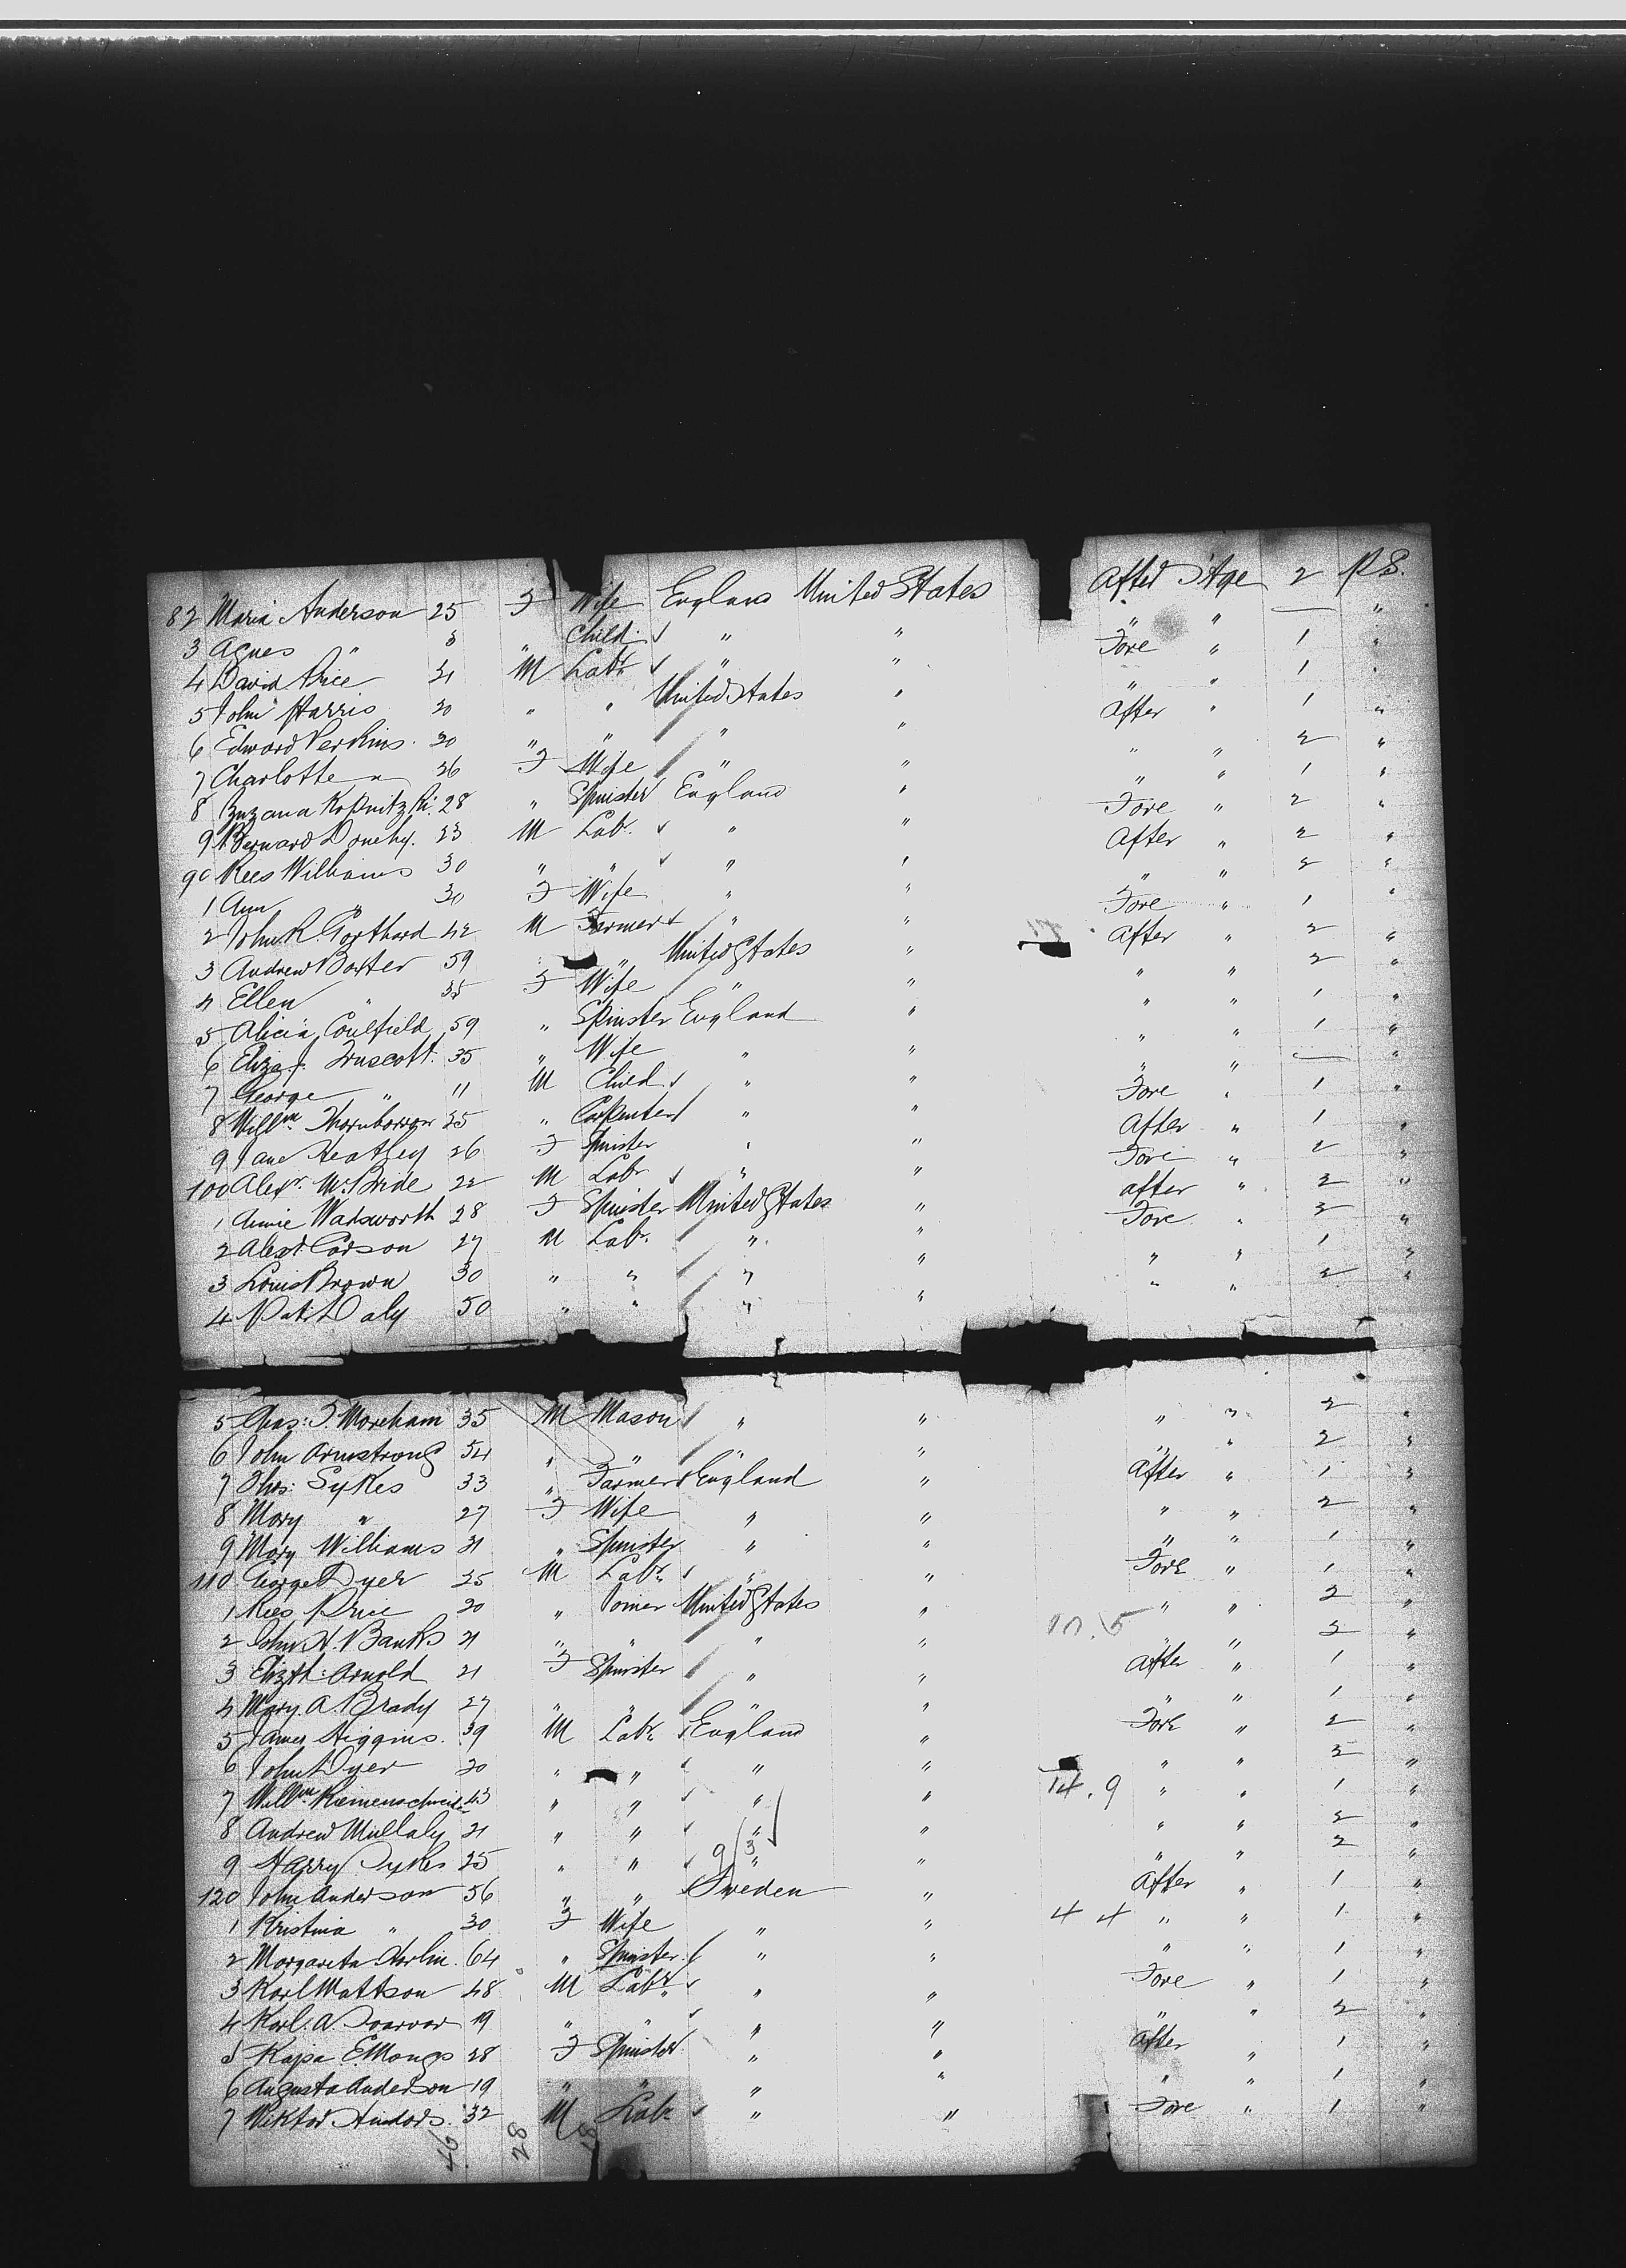 82 Maria Anderson 25 F Wife England United States After Stge 2 P.S.
3 Agnes " 8 " Child " " " " — "
4 David Price 21 M Labr " " Fore " 1 "
5 John Harris 20 " " United States " " " 1 "
6 Edward Perkins 30 " " " " After " 1 "
7 Charlotte " 26 F Wife " " " " 2 "
8 28 " Spinster England " " " 1 "
9 Bernard 23 M Lab. " " Fore " 2 "
90 Rees Williams 30 " " " " After " 2 "
1 Ann " 30 F Wife " " " " 2 "
2 John R. Gotthard 42 M Farmer " " Fore " 1 "
3 Andrew Baxter 59 " United States " After " 2 "
4 Ellen " 35 F Wife " " " " 2 "
5 Alicia Coulfield 59 " Spinster England " " " 1 "
6 Eliza J. Truscott 35 " Wife " " " " 1 "
7 George " 11 M Child " " " " — "
8 Willm Thornborrow 25 " Carpenter " " Fore " 1 "
9 Jane Heatley 26 F Spinster " " After " 1 "
100 Alexr. McBride 22 M Lab " " Fore " 2 "
1 Annie Wadsworth 28 F Spinster United States " after " 2 "
2 Alext Carson 27 M Lab. " " Fore " 2 "
3 Louis Brown 30 " " " " " " 1 "
4 Patk Daly 50 " " " " " " 2 "
5 Chas: T. Moreham 35 M Mason " " " " 2 "
6 John Armstrong 54 " " " " " " 2 "
7 Thos: Sykes 33 " Farmer England " After " 1 "
8 Mary " 27 F Wife " " " " 2 "
9 Mary Williams 21 " Spinster " " " " 1 "
110 George Dyer 25 M Labr " " Fore " 1 "
1 Rees Price 20 " Joiner United States " " " 2 "
2 John H. Banks 21 " " " " " " 2 "
3 Elizth: Arnold 21 F Spinster " " After " 1 "
4 Mary A. Brady 27 " " " " " " 1 "
5 James Higgins. 39 M Labr England " Fore " 2 "
6 John Dyer 20 " " " " " " 2 "
7 Willm Riemenschneider 43 " " " " 14.9 " " 1 "
8 Andrew Mullaly 21 " " " " " " 2 "
9 Harry Sykes 25 " " " " " " 2 "
120 John Anderson 56 " " Sweden " After " 1 "
1 Kristina " 30 F Wife " " 4 4 " " 1 "
2 Margareta 64 " Spinster " " " " 1 "
3 Karl Mattson 48 M Labr " " Fore " 1 "
4 Karl. A. 19 " " " " " " 2 "
5 Kajsa 28 F Spinster " " After " 1 "
6 Augusta Anderson 19 " " " " " " 1 "
7 32 M Lab. " " Fore " 1 "
46 28 18